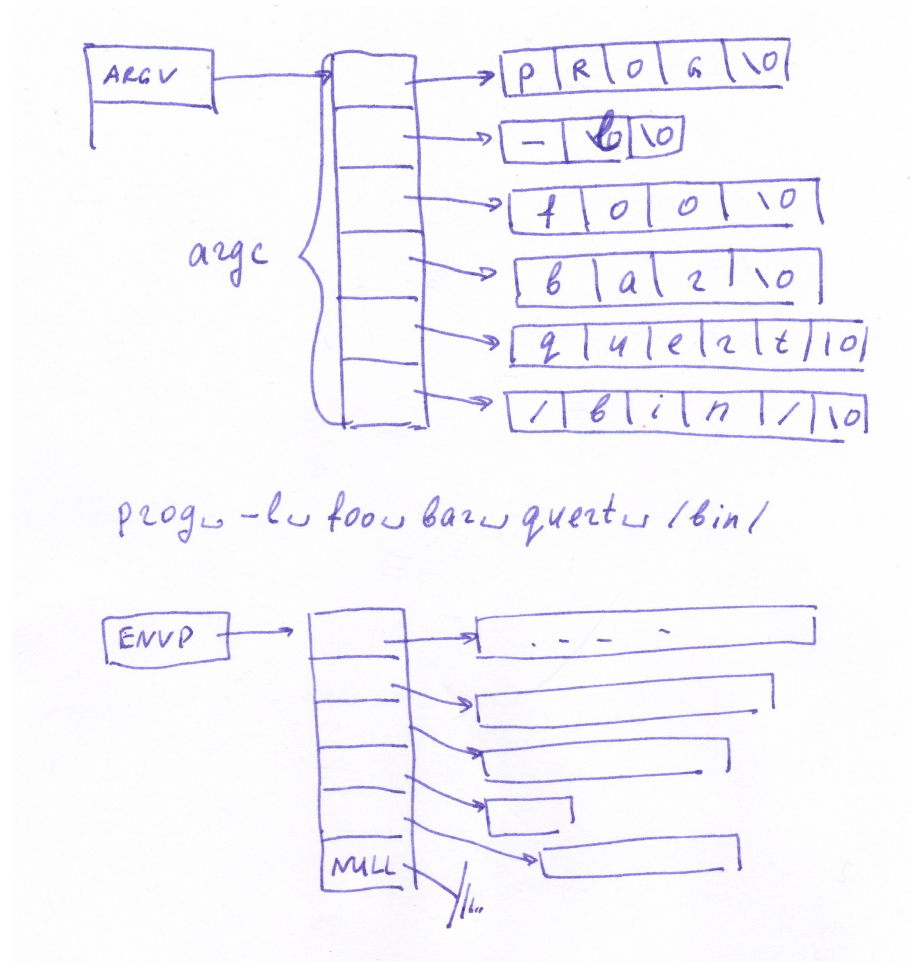 ARGV
P R O G \0
- l \0
f o o \0
argc
b a r \0
q u e r t \0
/ b i n / \0
prog␣ -l␣ foo␣ bar␣ quert␣ /bin/
ENVP
NULL